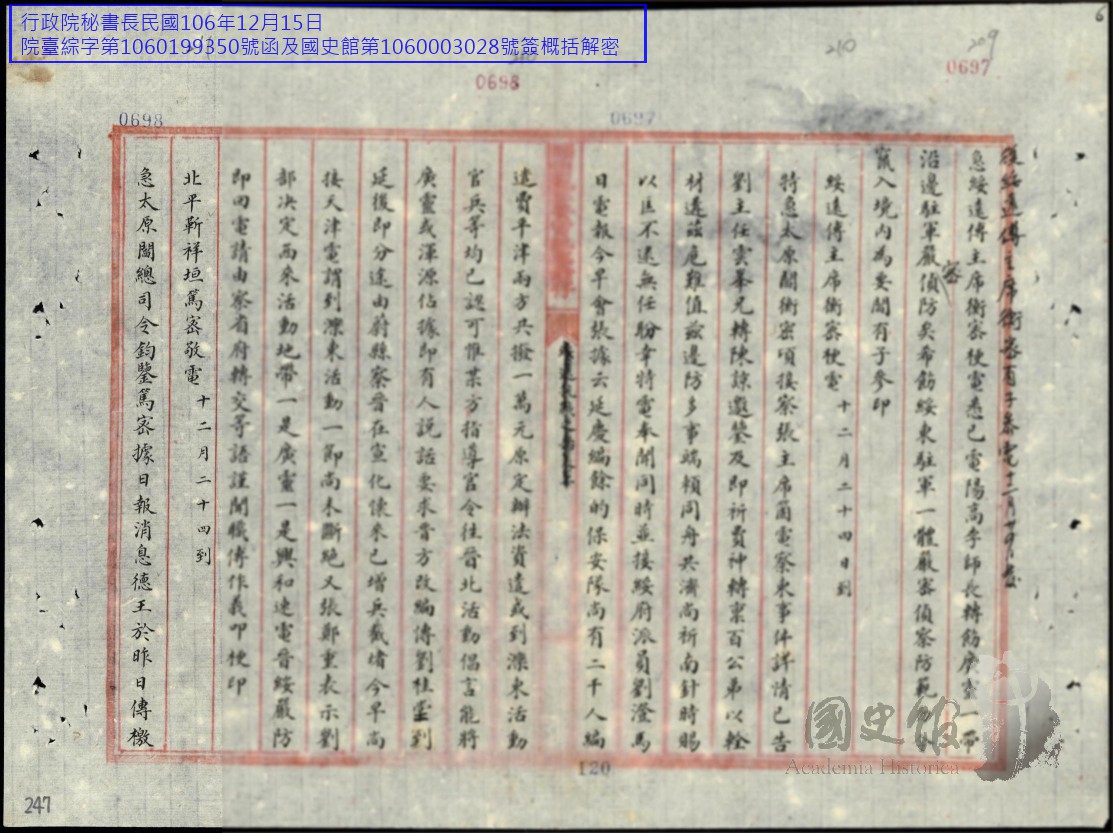 行政院秘書長民國106年12月15日
院臺綜字第1060199350號函及國史館第1060003028號簽概括解密
6
209
210
0697
0698
0697
0698
復綏遠傅主席衛密有子參電十二月廿四日發
急綏遠傅主席衛密梗電悉已電陽高李師長轉飭廣靈一帶
沿邊駐軍嚴偵防矣希飭綏東駐軍一體嚴密偵察防範
密
竄入境內為要閻有子參印
綏遠傅主席衛密梗電 十二月二十四日到
特急太原閻衛密頃接察張主席箇電察東事件詳情已告
劉主任雲峯兄轉陳諒邀鑒及即祈費神轉稟百公弟以輇
材遘茲危難值茲邊防多事端賴同舟共濟尚祈南針時賜
以匡不逮無任盼幸特電奉聞同時並接綏府派員劉澄馬
日電報今早會張據云延慶編餘的保安隊尚有二千人編
遣費平津兩方共撥一萬元原定辦法資遣或到灤東活動
官兵等均已認可惟某方指導官令往晉北活動倡言能將
廣靈或渾源佔據即有人說話要求晉方改編傅劉桂堂到
延後即分途由蔚縣察晉在宣化懷來已增兵截堵今早尚
接天津電謂到灤東活動一節尚未斷絕又張鄭重表示劉
部決定西來活動地帶一是廣靈一是興和速電晉綏嚴防
即回電請由察省府轉交等語謹聞職傅作義叩梗印
北平靳祥垣篤密敬電 十二月二十四到
急太原閻總司令鈞鑒篤密據日報消息德王於昨日傳檄
120
247
國史館
Academia Historica